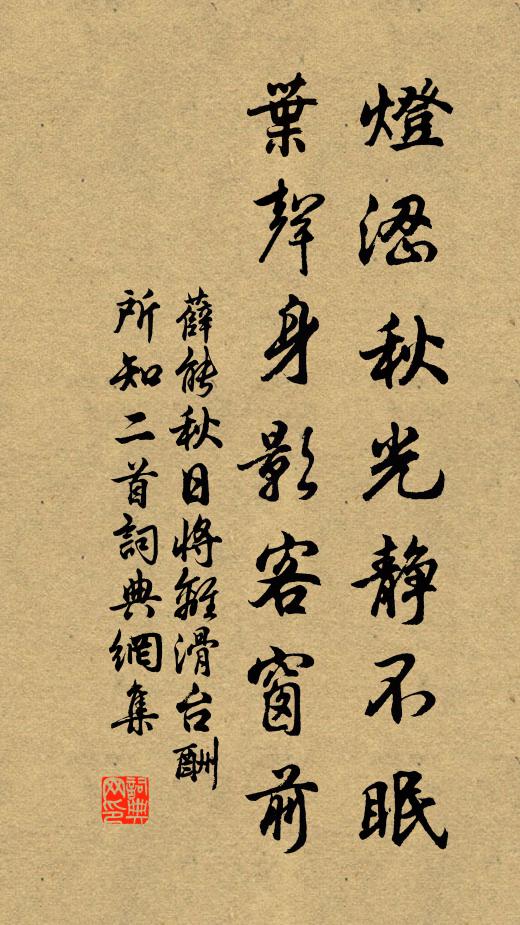 燈涩秋光静不眠
葉聲身影客窗前
薛能秋日將離滑台酬
所知二首詞典網集
詞典
网印